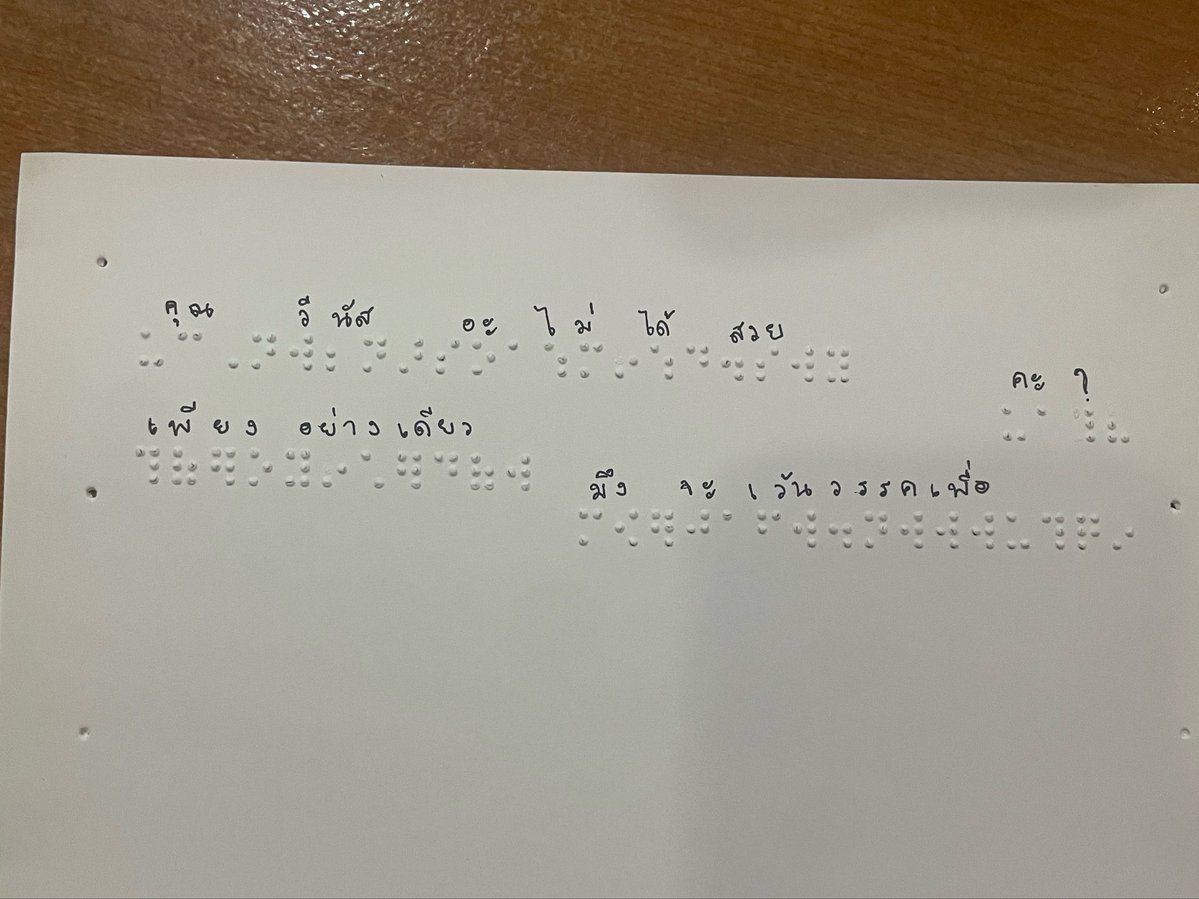 คุณ วีนัส อะ ไม่ ได้ สวย
เพียง อย่างเดียว
คะ ?
มึง จะ เว้นวรรคเพื่อ